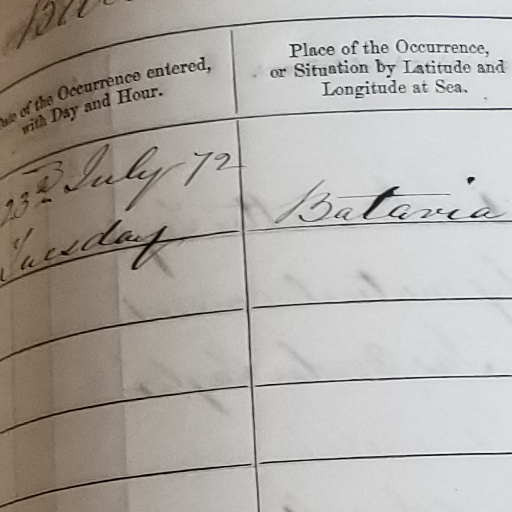 Date of the Occurrence entered,
with Day and Hour.
Place of the Occurrence,
or Situation by Latitude and
Longitude at Sea.
23rd July 72
Tuesday
Batavia